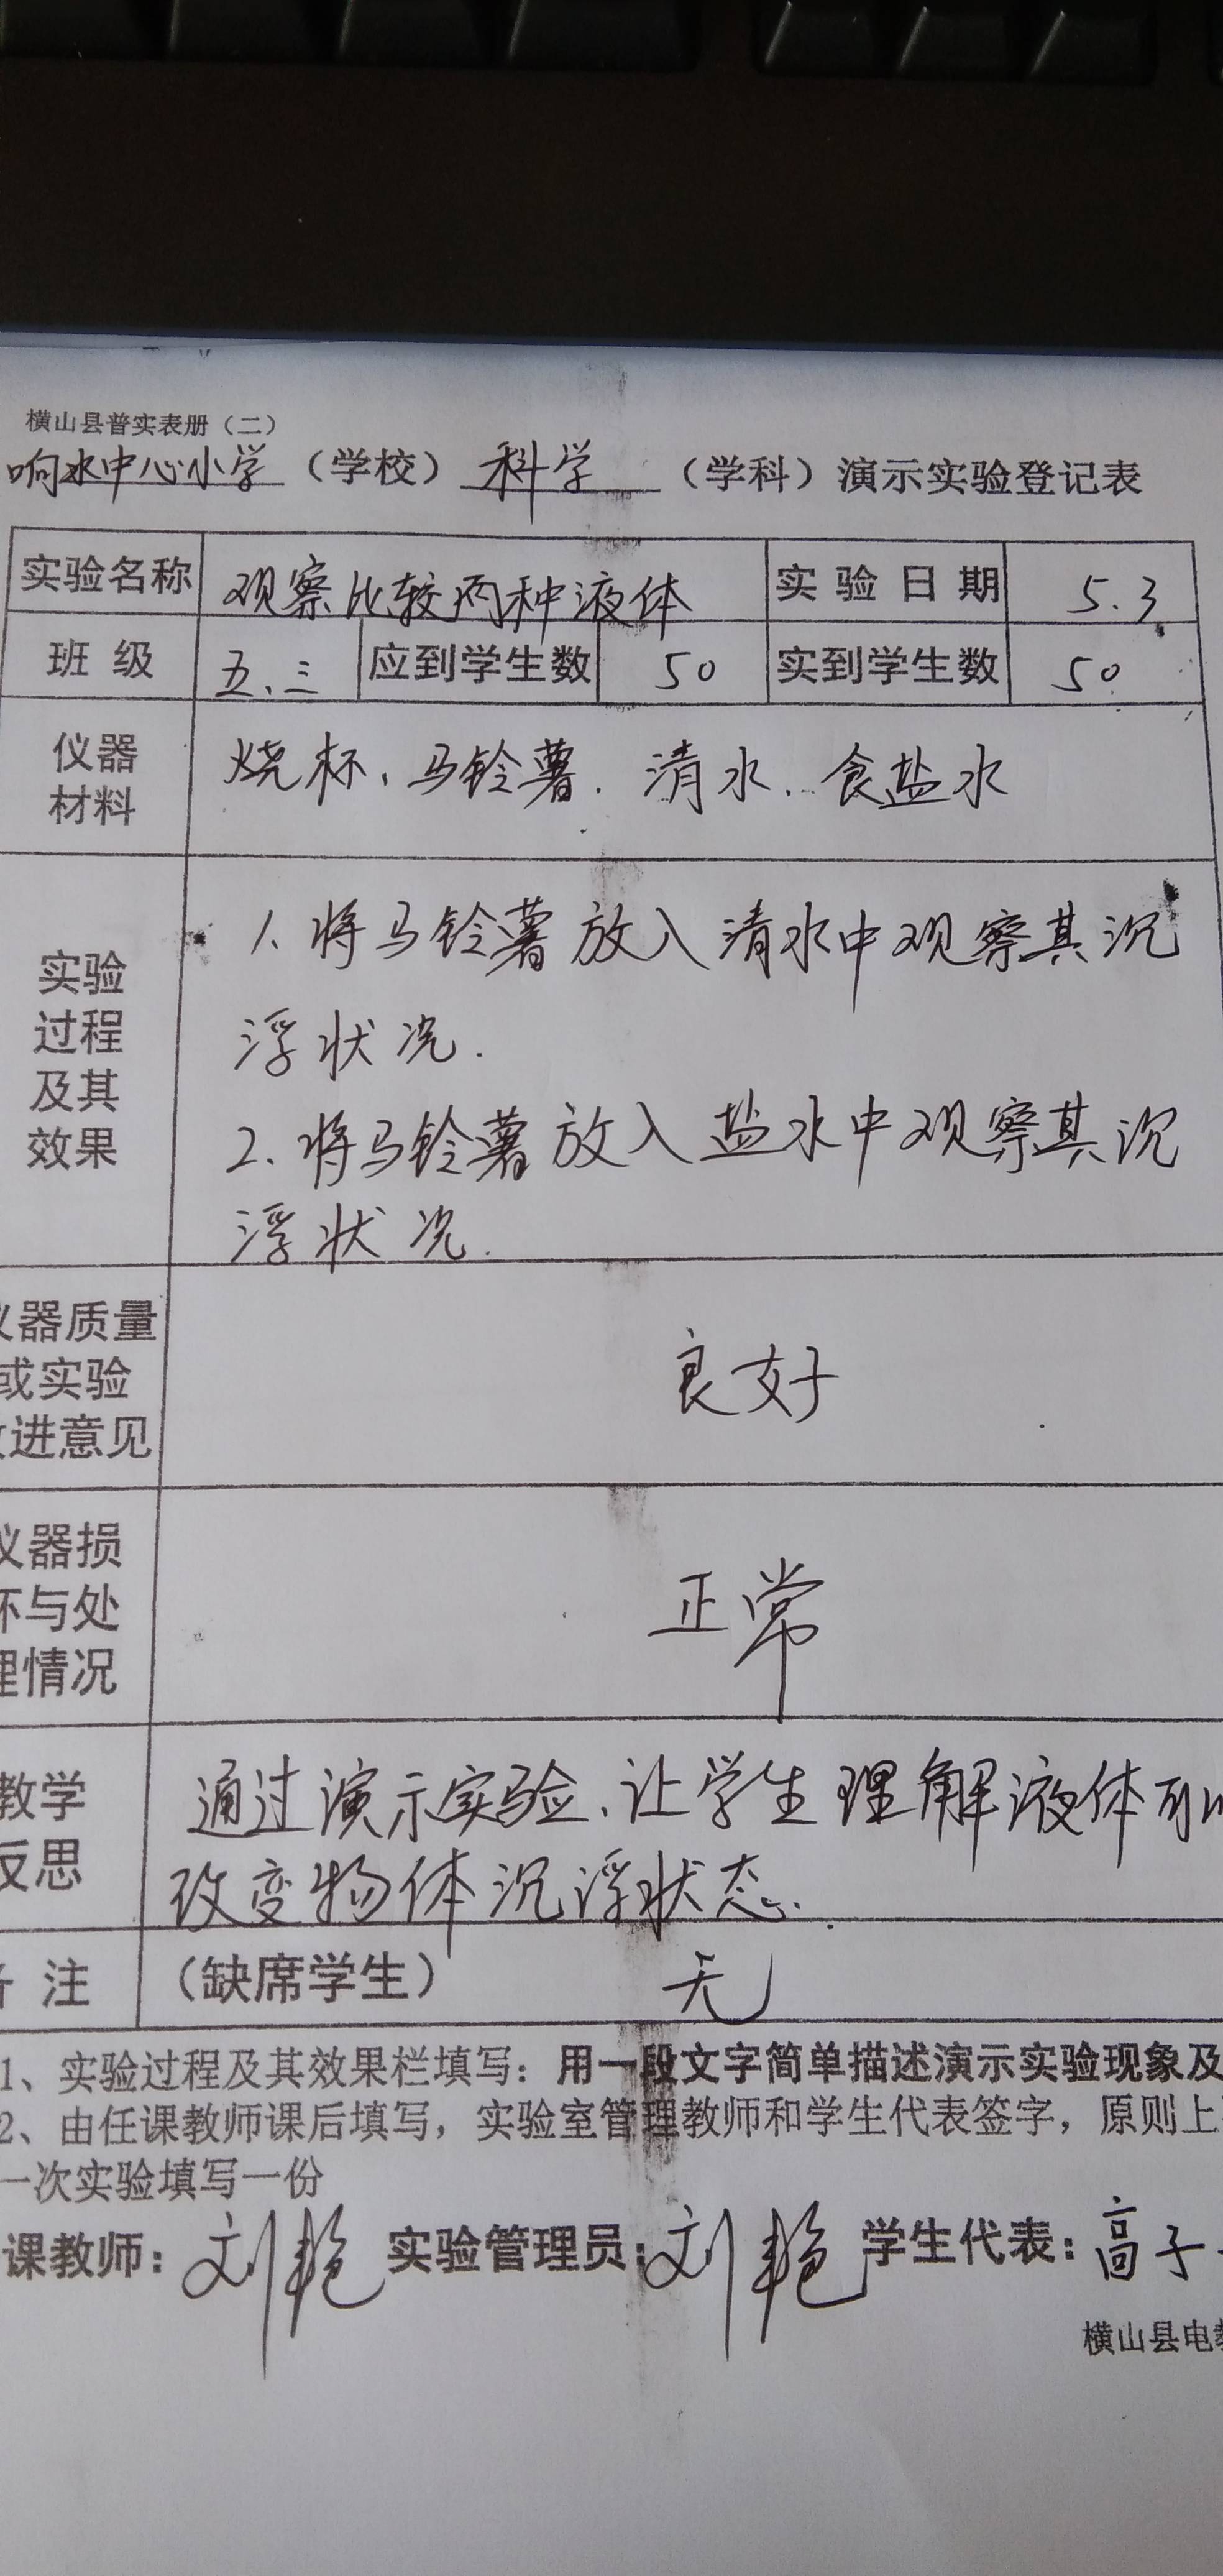 横山县普实表册（二）
响水中心小学（学校）科学（学科）演示实验登记表
实验名称 观察比较两种液体 实验日期 5.3
班级 五.三 应到学生数 50 实到学生数 50
仪器
材料
烧杯、马铃薯.清水.食盐水
实验
过程
及其
效果
1.将马铃薯放入清水中观察其沉
浮状况.
2.将马铃薯放入盐水中观察其沉
浮状况.
仪器质量
或实验
改进意见
良好
仪器损
坏与处
理情况
正常
教学
反思
通过演示实验、让学生理解液体可以
改变物体沉浮状态.
备注 （缺席学生） 无
1、实验过程及其效果栏填写：用一段文字简单描述演示实验现象及
2、由任课教师课后填写，实验室管理教师和学生代表签字，原则上
一次实验填写一份
课教师：刘艳 实验管理员：刘艳 学生代表：高子
横山县电教